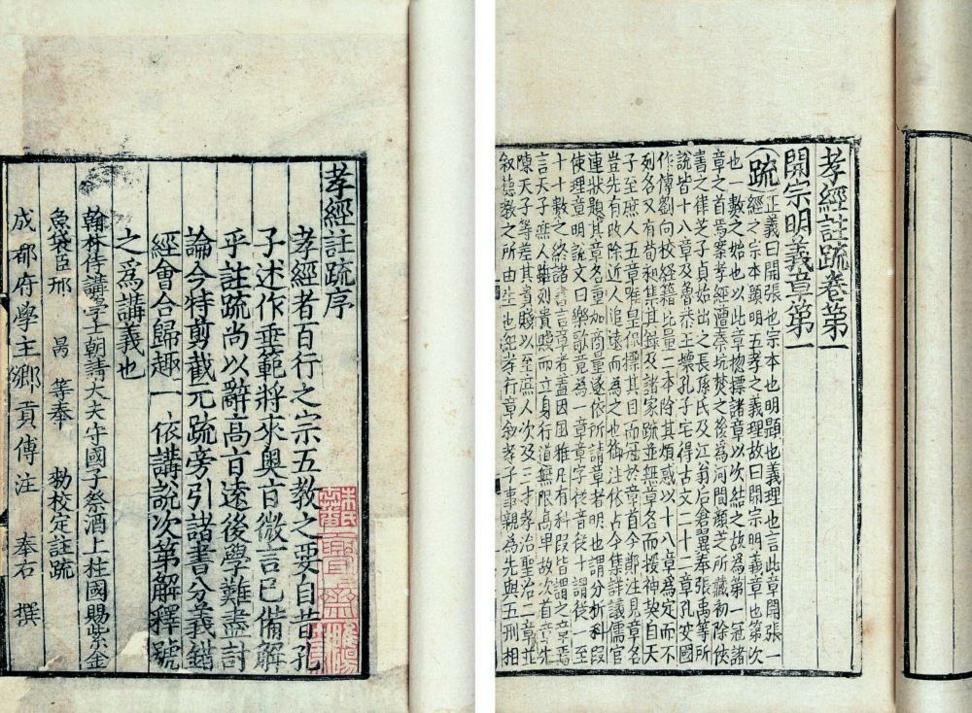 孝經註疏序
孝經者百行之宗五教之要自昔孔
子述作垂範將來奧旨微言已備解
乎註疏尚以辭高旨遠後學難盡討
論今特剪截元疏旁引諸書分義錯
經會合歸趣一依講說次第解釋號
之爲講義也
翰林侍講學士朝請大夫守國子祭酒上柱國賜紫金
魚袋臣邢 昺 等奉 勑校定註疏
成都府學主鄉貢傅注 奉右 撰
孝經註疏卷第一
開宗明義章第一
疏 正義曰開張也宗本也明顯也義理也言此章開張一
經之宗本顯明五孝之義理故曰開宗明義章也第次
也一數之始也以此章揔摽諸章以次結之故為第一冠諸
章之首焉案孝經遭秦坑焚之後為河間顏芝所藏初除挾
書之律芝子貞始出之長孫氏及江翁后倉翼奉張禹等所
說皆十八章及魯恭王壞孔子宅得古文二十二章孔安國
作傳劉向校經籍比量二本除其煩惑以十八章為定而不
列名又有荀昶集其錄及諸家疏並無章名而援神契自天
子至庶人五章唯皇侃摽其目而冠於章首今鄭注見章名
豈先有改除近人追遠而為之也御注依古今集詳議儒官
連狀題其章名重加商量遂依所請章者明也謂分析科段
使理章明說文曰樂歌竟為一章章字從音從十謂從一至
十十數之終諸書言章者蓋因風雅凡有科段皆謂之章焉
言天子庶人雖列貴賤而立身行道無限高卑故次首章先
陳天子等差其貴賤以至庶人次及三才孝治聖治三章並
叙德教之所由生也紀孝行章叙孝子事親為先與五刑相